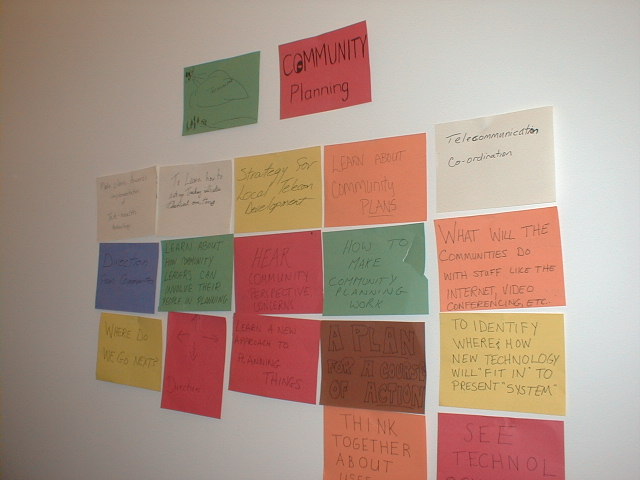 COMMUNITY
Planning
Telecommunication
Co-ordination
To Learn how to
Strategy For
Local Telecom
Development
LEARN ABOUT
Community
PLANS
Direction
from Communities
LEARN ABOUT
HOW COMMUNITY
LEADERS CAN
INVOLVE THEIR
PEOPLE IN PLANNING
HEAR
COMMUNITY
PERSPECTIVE
CONCERNS
HOW TO
MAKE
COMMUNITY
PLANNING
WORK
WHAT WILL THE
COMMUNITIES DO
WITH STUFF LIKE THE
INTERNET, VIDEO
CONFERENCING, ETC.
WHERE DO
WE GO NEXT?
Direction
LEARN A NEW
APPROACH TO
PLANNING
THINGS
A PLAN
FOR A COURSE
OF ACTION
TO IDENTIFY
WHERE & HOW
NEW TECHNOLOGY
WILL "FIT IN" TO
PRESENT "SYSTEM"
THINK
TOGETHER
ABOUT
SEE
TECHNOL